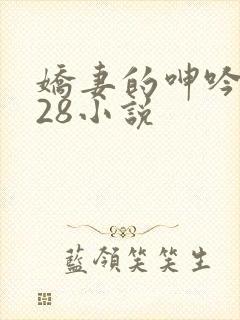 嬌妻的呻吟
28小說
藍領笑笑生